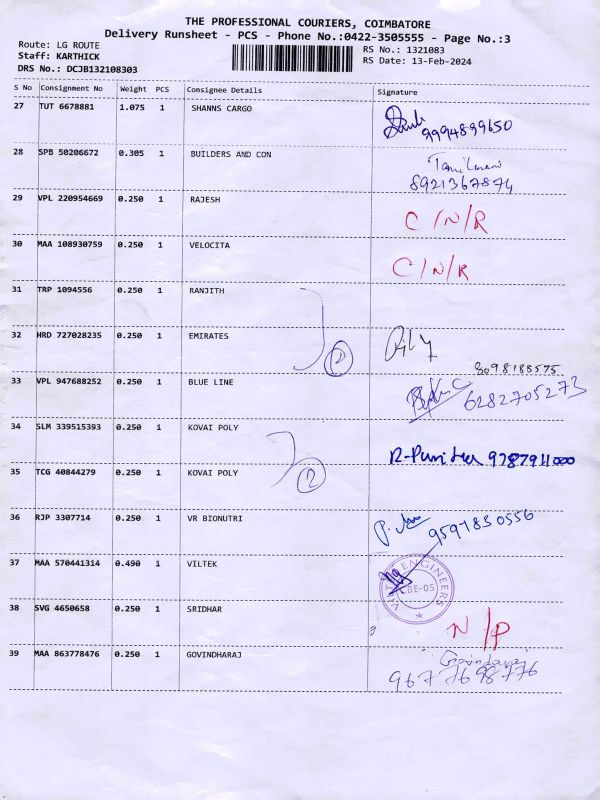 THE PROFESSIONAL COURIERS, COIMBATORE
Delivery Runsheet - PCS - Phone No.:0422-3505555 - Page No.:3
Route: LG ROUTE RS No.: 1321083
Staff: KARTHICK RS Date: 13-Feb-2024
DRS No.: DCJB132108303
S No Consignment No Weight PCS Consignee Details Signature
27 TUT 6678881 1.075 1 SHANNS CARGO
9994899650
28 SPB 50206672 0.305 1 BUILDERS AND CON
8921367874
29 VPL 220954669 0.250 1 RAJESH C/N/R
30 MAA 108930759 0.250 1 VELOCITA C/N/R
31 TRP 1094556 0.250 1 RANJITH
32 HRD 727028235 0.250 1 EMIRATES
8098188575
33 VPL 947688252 0.250 1 BLUE LINE 6282705273
34 SLM 339515393 0.250 1 KOVAI POLY
9787911000
35 TCG 40844279 0.250 1 KOVAI POLY
36 RJP 3307714 0.250 1 VR BIONUTRI 9591830556
37 MAA 570441314 0.490 1 VILTEK
ENGINEERS
CBE-05
38 SVG 4650658 0.250 1 SRIDHAR N/P
39 MAA 863778476 0.250 1 GOVINDHARAJ